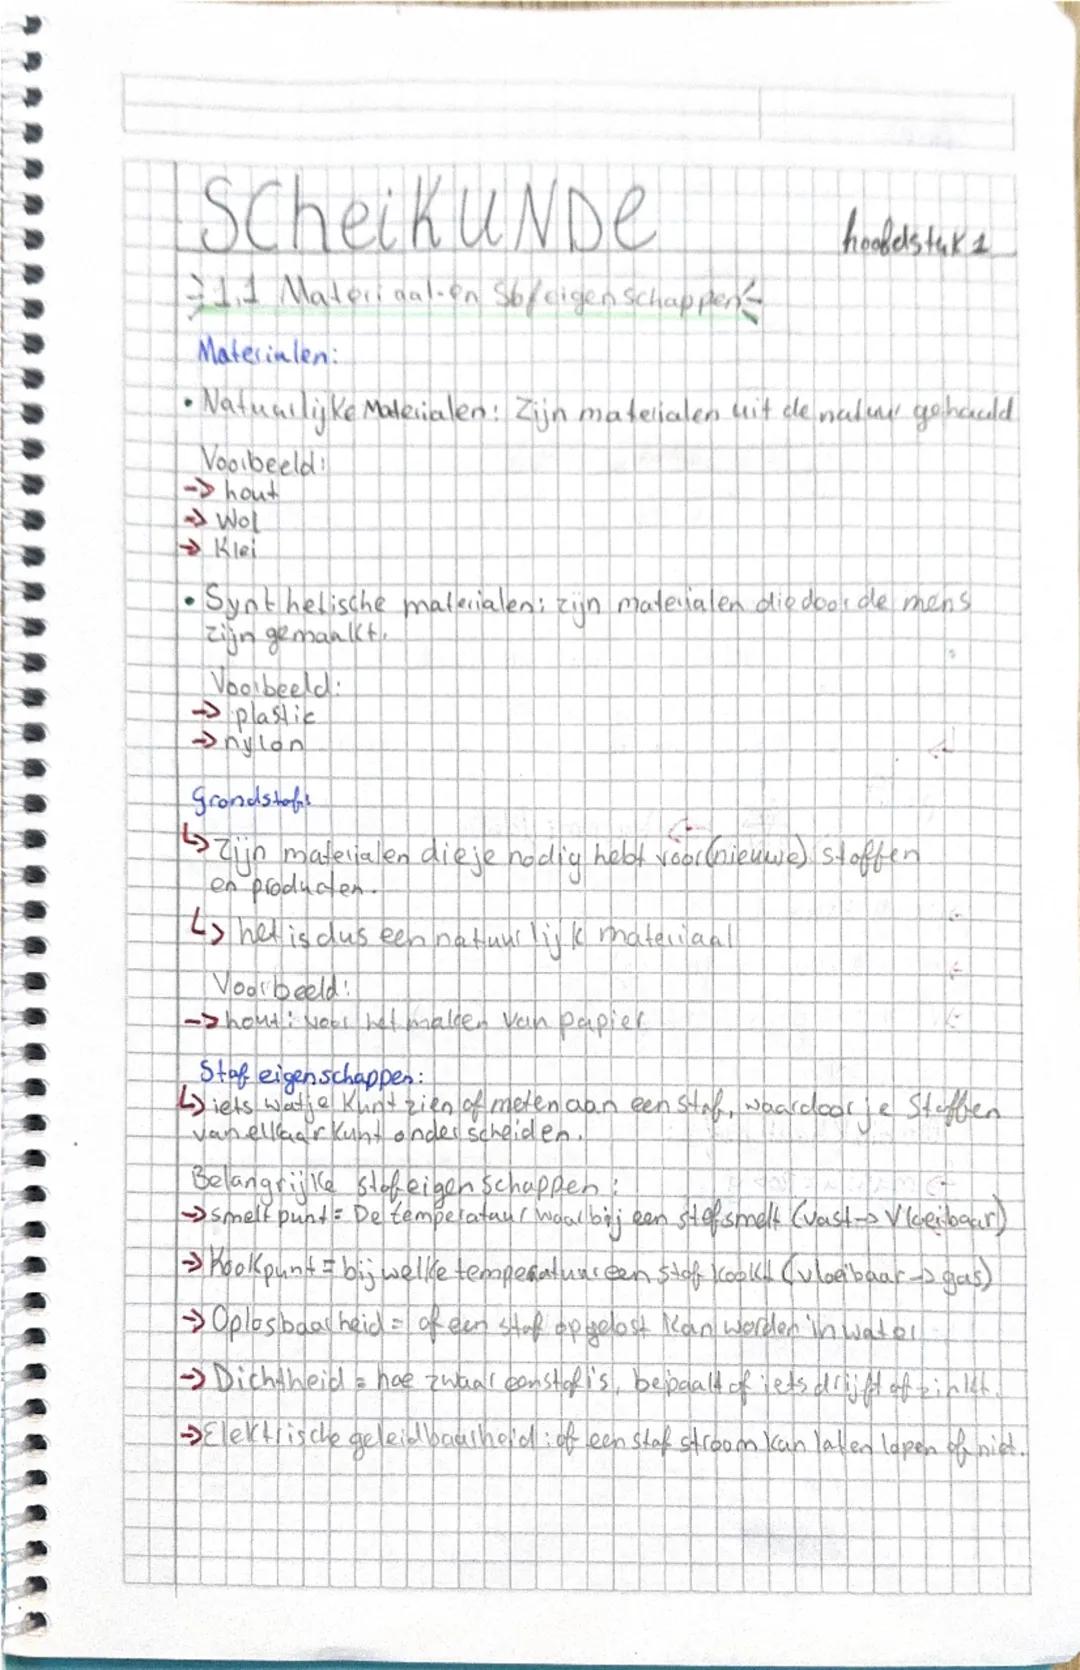 SCheiKUNDe
hoofdstuk 1
1.1 Materiaal-en Stofeigenschappen
Materialen:
• Natuurlijke Materialen: Zijn materialen uit de natuur gehaald
Voorbeeld:
-> hout
-> Wol
-> Klei
• Synthetische materialen: zijn materialen die door de mens
zijn gemaakt.
Voorbeeld:
-> plastic
-> nylon
Grondstof:
↳ Zijn materialen die je nodig hebt voor (nieuwe) stoffen
en producten.
↳ het is dus een natuurlijk materiaal!
Voorbeeld:
-> hout: voor het maken van papier
Stof eigenschappen:
↳ iets wat je kunt zien of meten aan een stof, waardoor je stoffen
van elkaar kunt onderscheiden.
Belangrijke stofeigenschappen:
-> smeltpunt = De temperatuur waarbij een stof smelt (vast -> vloeibaar)
-> Kookpunt = bij welke temperatuur een stof kookt (vloeibaar -> gas)
-> Oplosbaarheid = of een stof opgelost kan worden in water
-> Dichtheid = hoe zwaar een stof is, bepaalt of iets drijft of zinkt.
-> Elektrische geleidbaarheid: of een stof stroom kan laten lopen of niet.